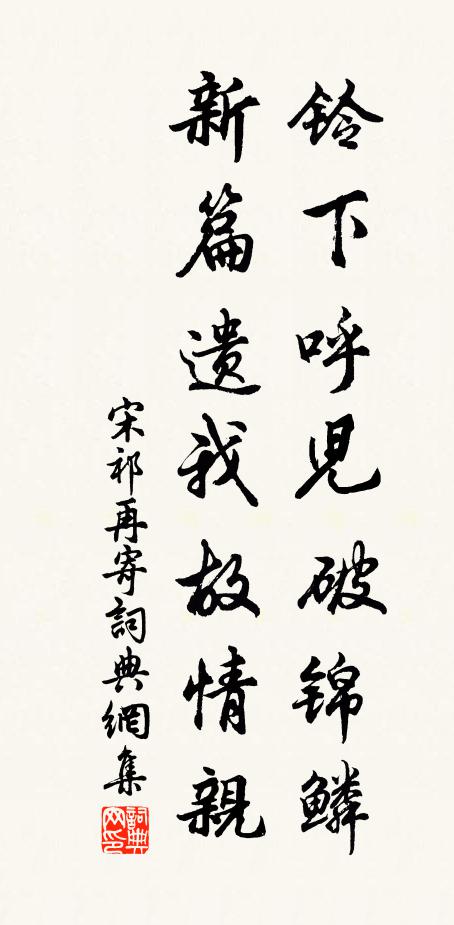 鈴下呼児破錦鱗
新篇遺我故情親
宋祁再寄詞典網集
詞典網印